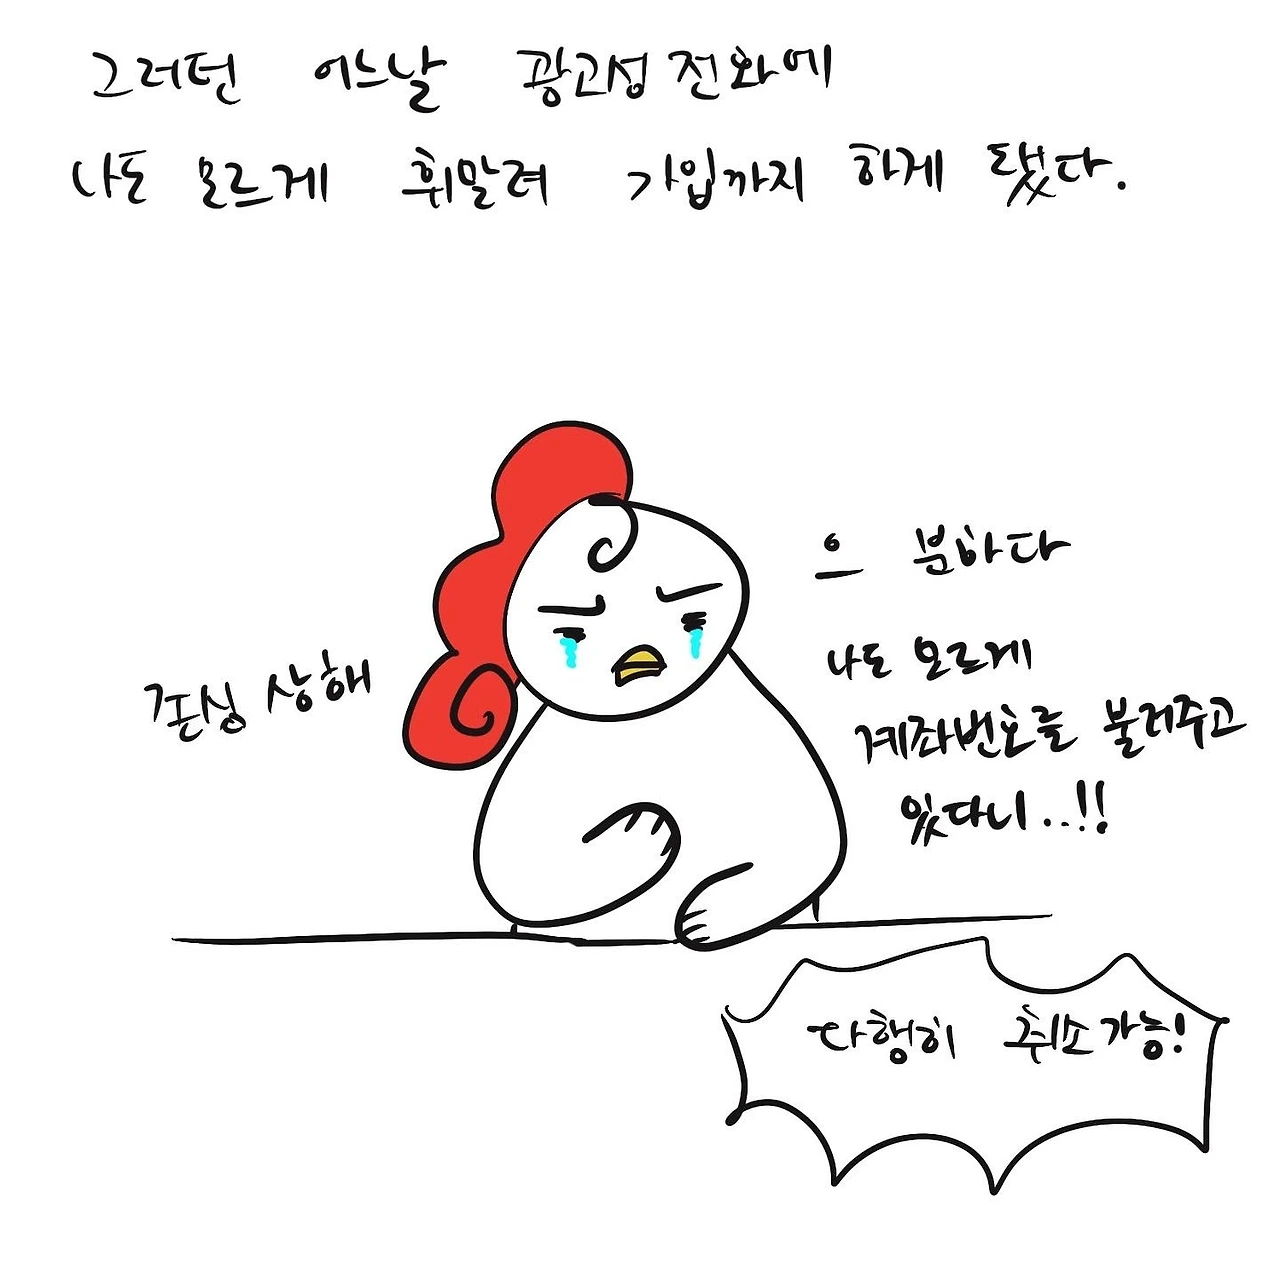 그러던 어느날 광고성 전화에
나도 모르게 휘말려 가입까지 하게 됐다.
으 분하다
나도 모르게
계좌번호를 불러주고
있다니..!!
존심 상해
다행히 취소가능!